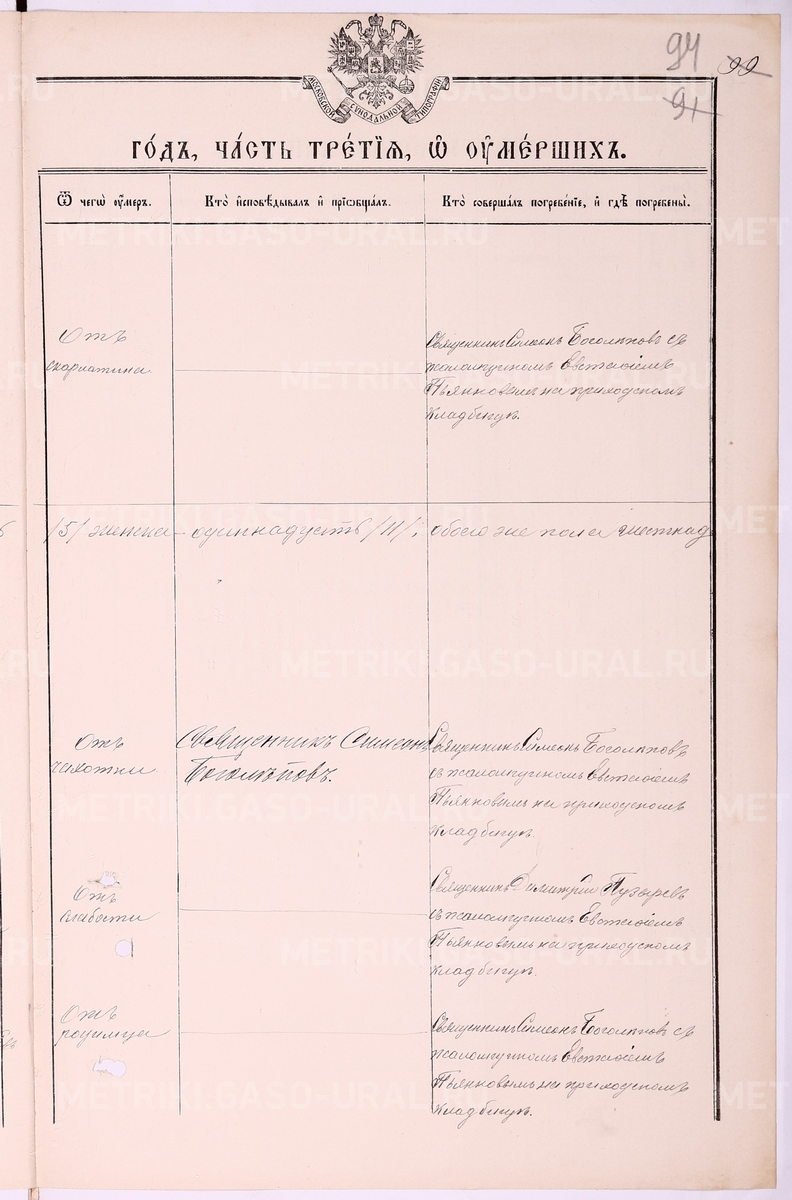 94
99
91
МОСКОВСКОЙ СѴНОДАЛЬНОЙ ТИПОГРАФІИ
ГО́ДЪ, ЧА́СТЬ ТРЕ́ТІЯ, Ѽ ОУ҆МЕ́РШИХЪ.
Ѿ чегѡ̀ оу҆́меръ.
Кто̀ и҆сповѣ́дывалъ и҆ прїѡбща́лъ.
Кто̀ соверша́лъ погребе́нїе, и҆ гдѣ̀ погребены̀.
Отъ
скарлатина
Священникъ Симеонъ Боголѣповъ съ
псаломщикомъ Евгеніемъ
Пьянковымъ на приходскомъ
кладбищѣ.
/5/ женска – одиннадцать /11/; обоего же пола шестнад
Отъ
чахотки
Священникъ Симеонъ
Боголѣповъ.
Священникъ Симеонъ Боголѣповъ
съ псаломщикомъ Евгеніемъ
Пьянковымъ на приходскомъ
кладбищѣ.
Отъ
слабости
Священникъ Димитрій Пузыревъ
съ псаломщикомъ Евгеніемъ
Пьянковымъ на приходскомъ
кладбищѣ.
Отъ
родимца
Священникъ Симеонъ Боголѣповъ съ
псаломщикомъ Евгеніемъ
Пьянковымъ на приходскомъ
кладбищѣ.
METRIKI.GASO-URAL.RU